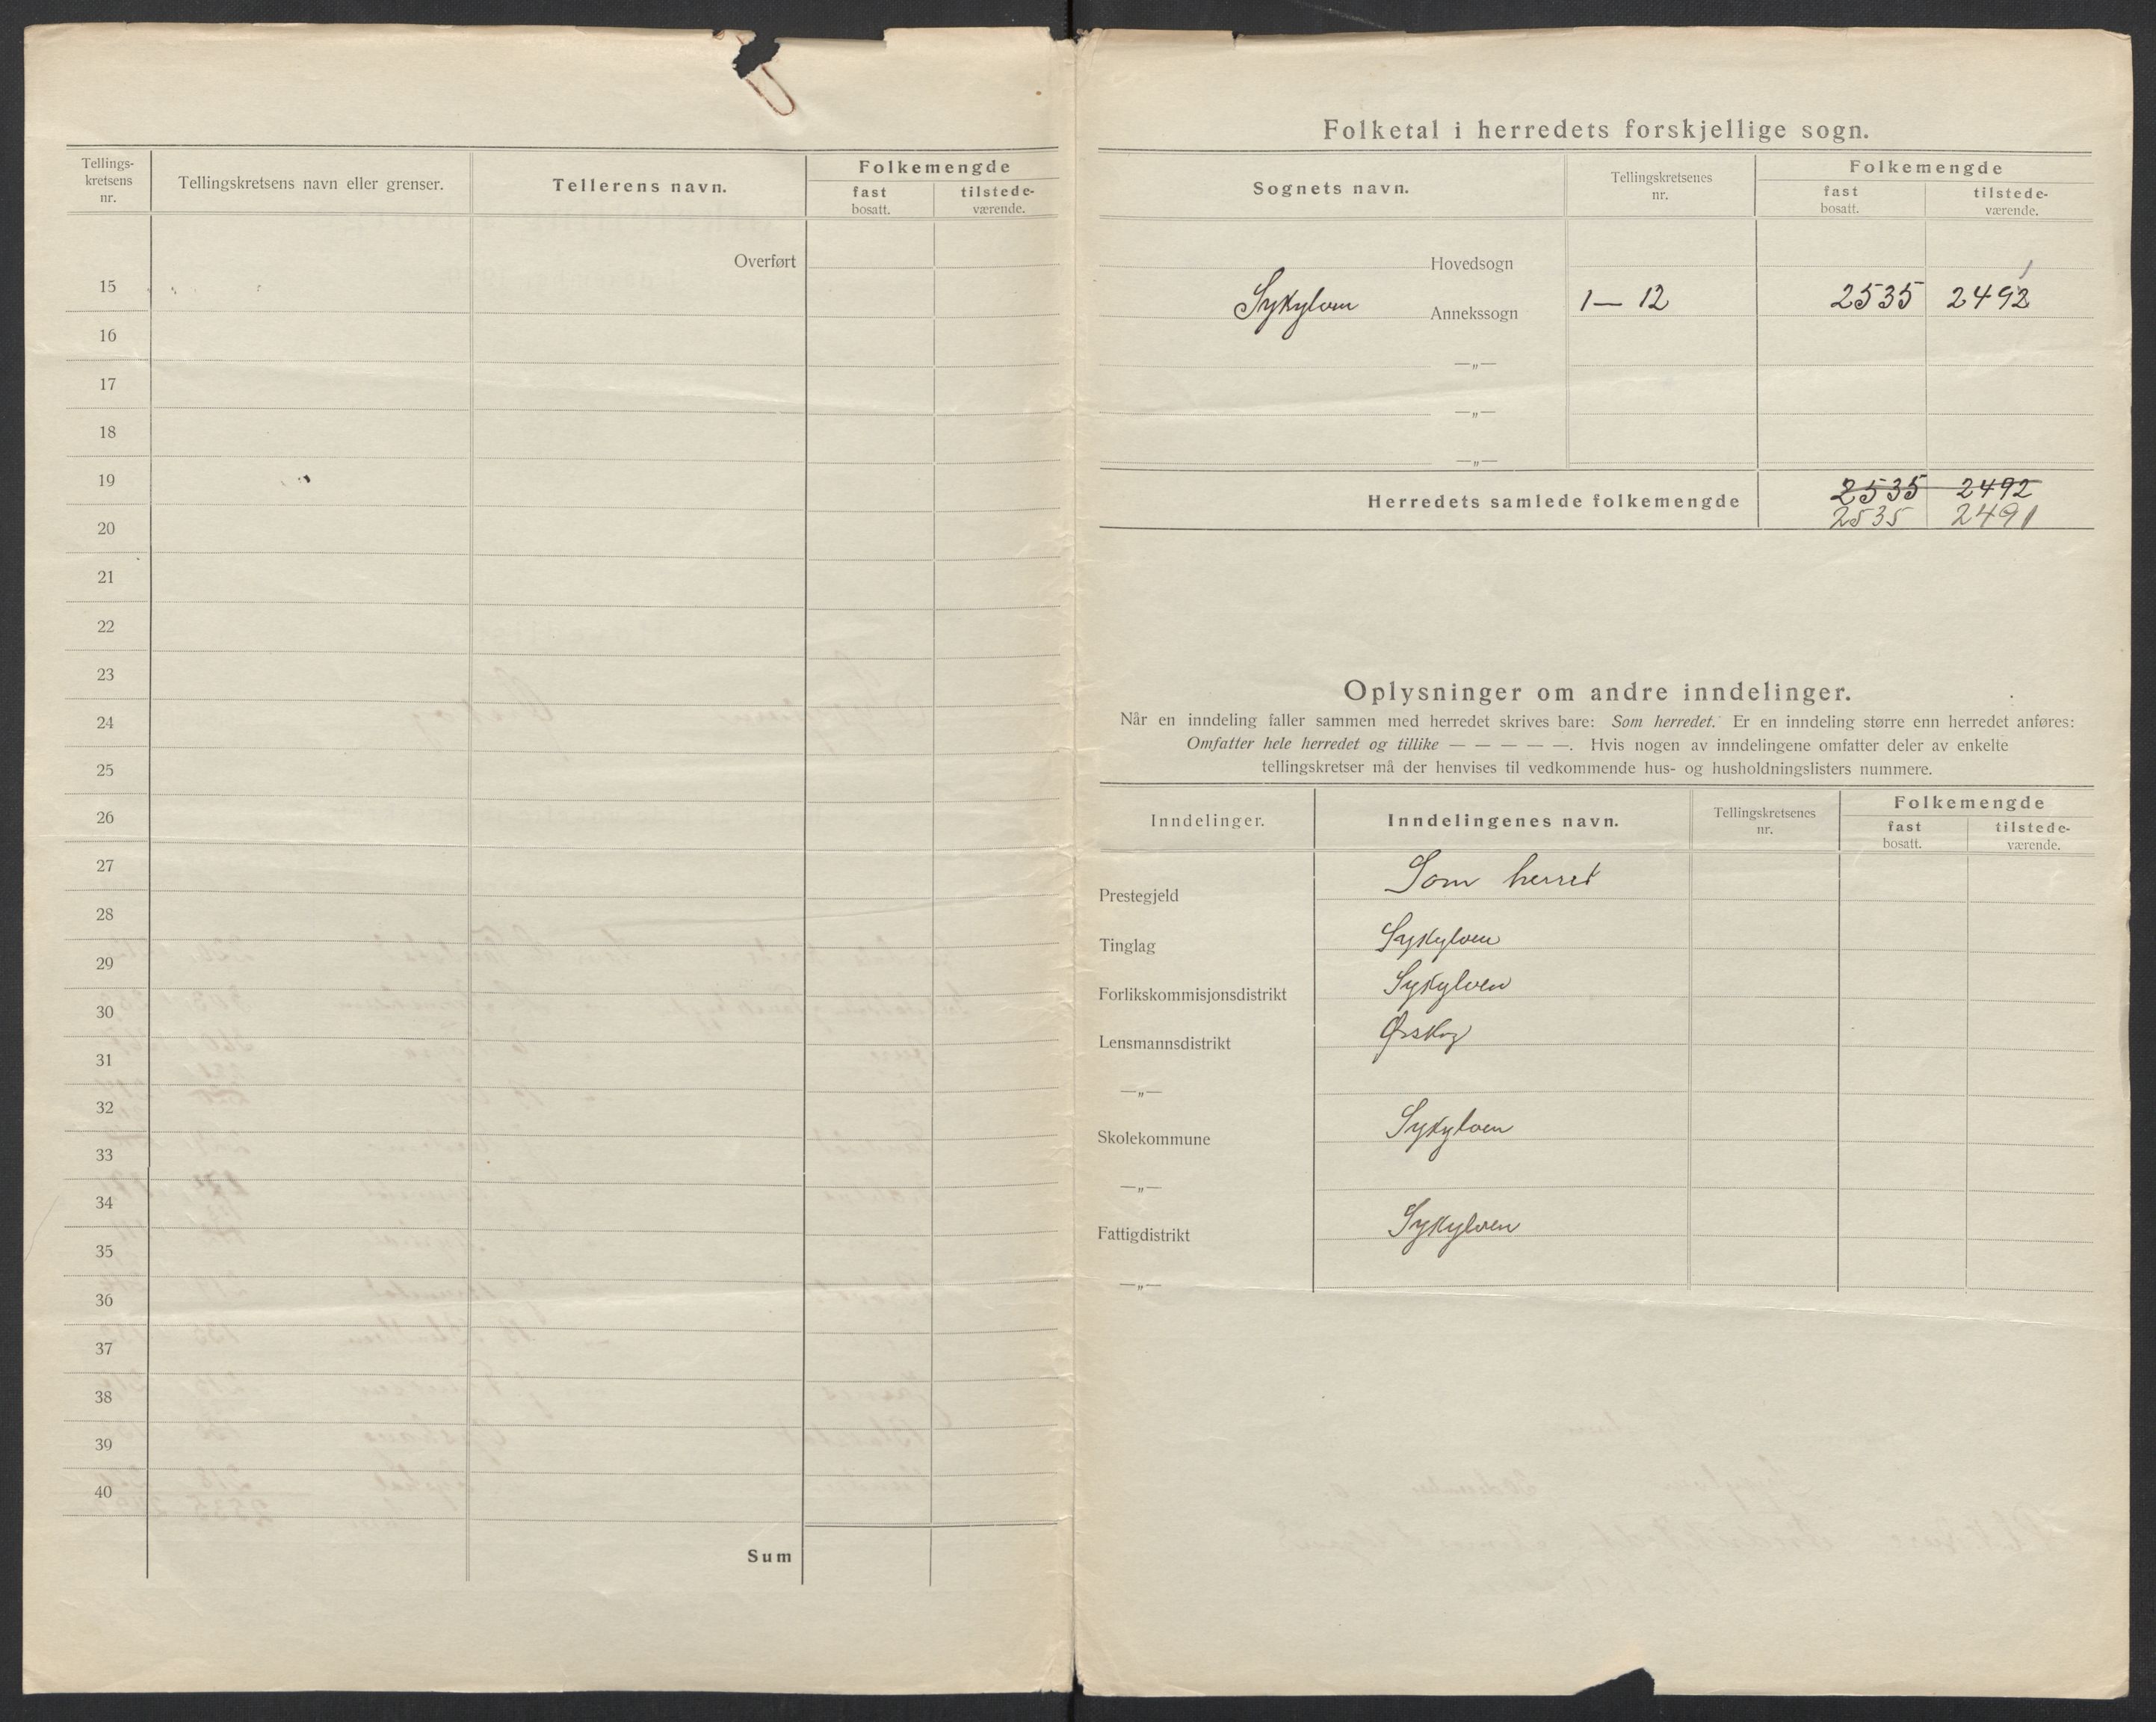 Tellings-
kretsens
nr.
Tellingskretsens navn eller grenser.
Tellerens navn.
Folkemengde
fast
bosatt.
tilstede-
værende.
Overført
15
16
17
18
19
20
21
22
23
24
25
26
27
28
29
30
31
32
33
34
35
36
37
38
39
40
Sum
Folketal i herredets forskjellige sogn.
Sognets navn.
Tellingskretsenes
nr.
Folkemengde
fast
bosatt.
tilstede-
værende.
Hovedsogn
1
Sykylven Annekssogn 1 — 12 2535 2492
—„—
—„—
—„—
2535 2492
Herredets samlede folkemengde
2535 2491
Oplysninger om andre inndelinger.
Når en inndeling faller sammen med herredet skrives bare: Som herredet. Er en inndeling større enn herredet anføres:
Omfatter hele herredet og tillike — — — — —. Hvis nogen av inndelingene omfatter deler av enkelte
tellingskretser må der henvises til vedkommende hus- og husholdningslisters nummere.
Inndelinger.
Inndelingenes navn.
Tellingskretsenes
nr.
Folkemengde
fast
bosatt.
tilstede-
værende.
Prestegjeld Som herred
Tinglag Sykylven
Forlikskommisjonsdistrikt Sykylven
Lensmannsdistrikt Ørskog
—„—
Skolekommune Sykylven
—„—
Fattigdistrikt Sykylven
—„—